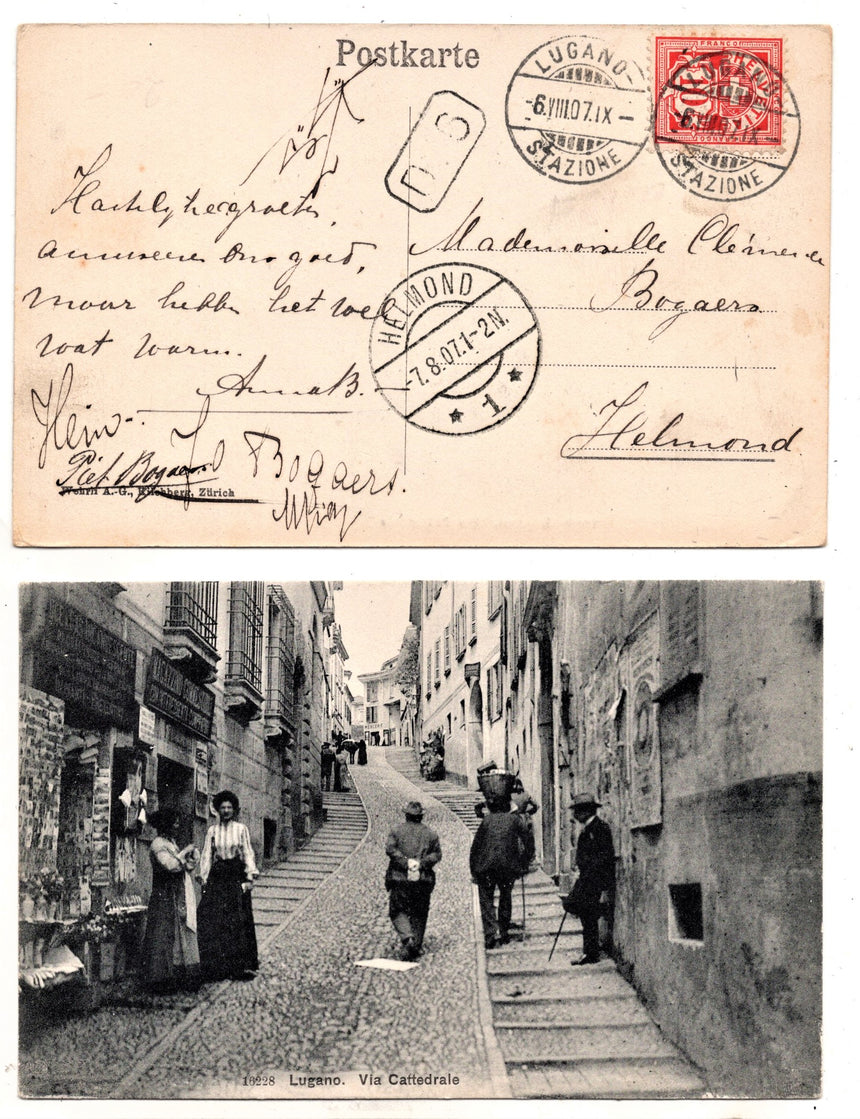 Postkarte
LUGANO
-6.VIII.07.IX-
STAZIONE
FRANCO
HELVETIA
10
LUGANO
-6.VIII.07.IX-
STAZIONE
D 6
Hartelijke groeten,
amuseeren ons goed,
maar hebben het wel
wat warm.
Anna B.
Hein
Jo Bogaers.
Piet Bogaers
Wehrli A.-G., Kilchberg, Zürich
Mademoiselle Clémence
Bogaers
Helmond
HELMOND
-7.8.07.1-2N.
* 1 *
16228 Lugano. Via Cattedrale